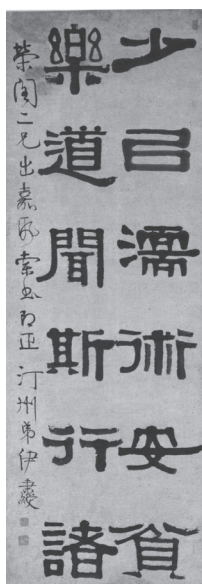 少以濡術安貧
樂道聞斯行諸
榮閣二兄出嘉紙索書即正 汀州弟伊秉綬